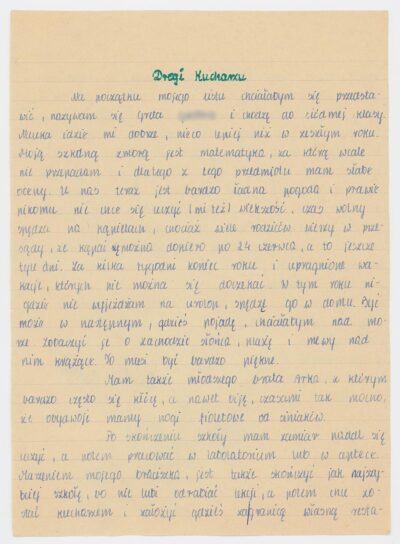 Drogi Kucharzu
Na początku mojego listu chciałabym się przedsta-
wić, nazywam się Greta i chodzę do siódmej klasy.
Nauka idzie mi dobrze, nieco lepiej niż w zeszłym roku.
Moją szkolną zmorą jest matematyka, za którą wcale
nie przepadam i dlatego z tego przedmiotu mam słabe
oceny. U nas teraz jest bardzo ładna pogoda i prawie
nikomu nie chce się uczyć (mi też) większość, czas wolny
spędza na kąpielach, chociaż wiele rodziców wierzy w prze-
sądy, że kąpać się można dopiero po 24 czerwca, a to jeszcze
tyle dni. Za kilka tygodni koniec roku i upragnione wa-
kacje, których nie można się doczekać. W tym roku ni-
gdzie nie wyjeżdżam na urlop, spędzę go w domu. Być
może w następnym, gdzieś pojadę, chciałabym nad mo-
rze zobaczyć je o zachodzie słońca, plażę i mewy nad
nim krążące. To musi być bardzo piękne.
Mam także młodszego brata Arka, z którym
bardzo często się kłócę, a nawet biję, czasami tak mocno,
że obydwoje mamy nogi fioletowe od siniaków.
Po skończeniu szkoły mam zamiar nadal się
uczyć, a potem pracować w laboratorium lub w aptece.
Marzeniem mojego braciszka, jest także skończyć jak najszyb-
ciej szkołę, bo nie lubi odrabiać lekcji, a potem chce zo-
stać kucharzem i założyć gdzieś zagranicą własną resta-